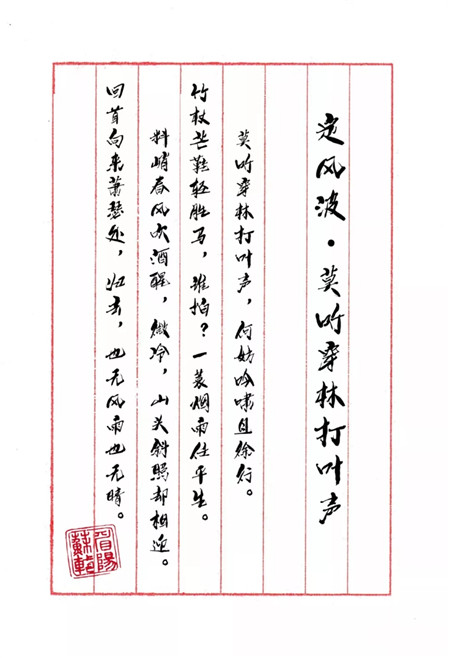 定风波·莫听穿林打叶声
莫听穿林打叶声，何妨吟啸且徐行。
竹杖芒鞋轻胜马，谁怕？一蓑烟雨任平生。
料峭春风吹酒醒，微冷，山头斜照却相迎。
回首向来萧瑟处，归去，也无风雨也无晴。
眉陽
蘇軾